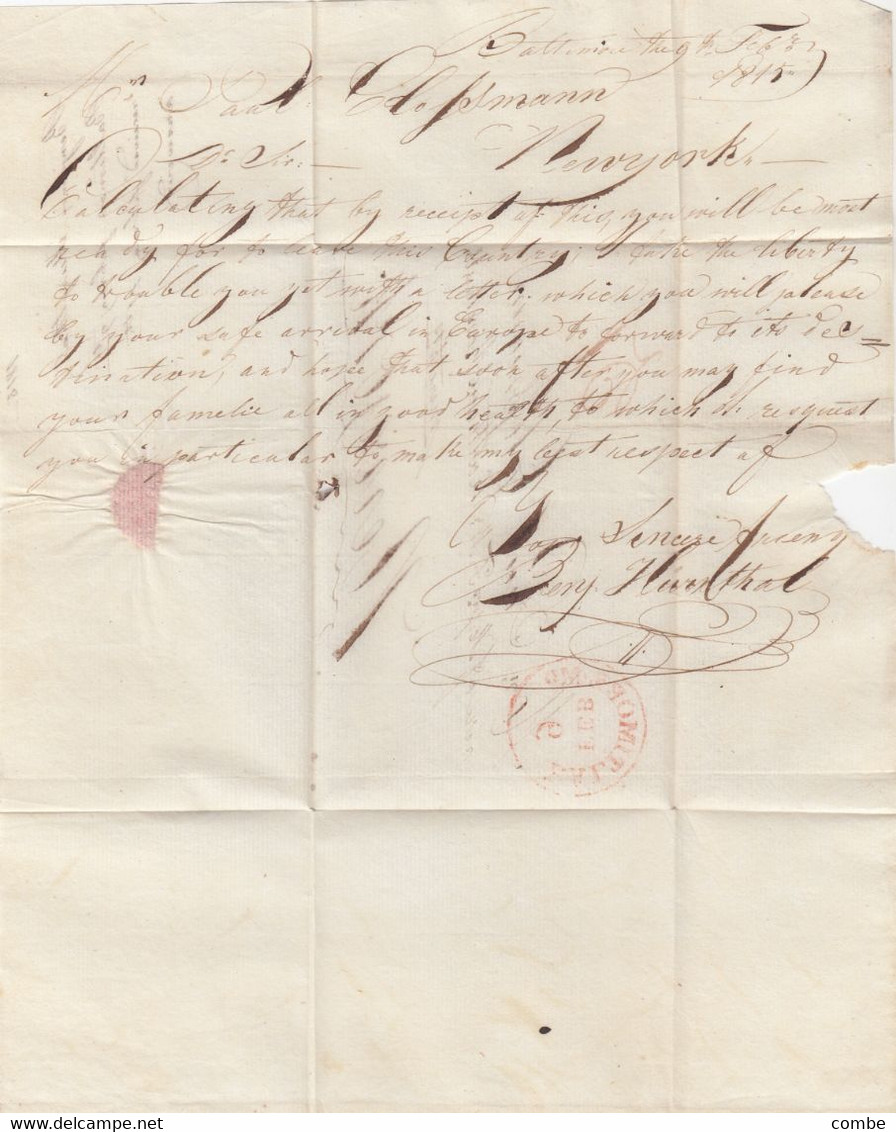 Baltimore the 9th Feby
1815
Mr Paul Clossmann
Dr Sir Newyork
Calculating that by receipt of this, you will be most
reh dy for to leave this Country; I take the liberty
to trouble you yet with a letter, which you will please
by your safe arrival in Europe to forward to its des=
tination, and hope that soon after you may find
your famelie all in good health, to which I resquest
you in particular to make my best respect of
Your Sincere
Benj.
FEB
9
delcampe.net
combe